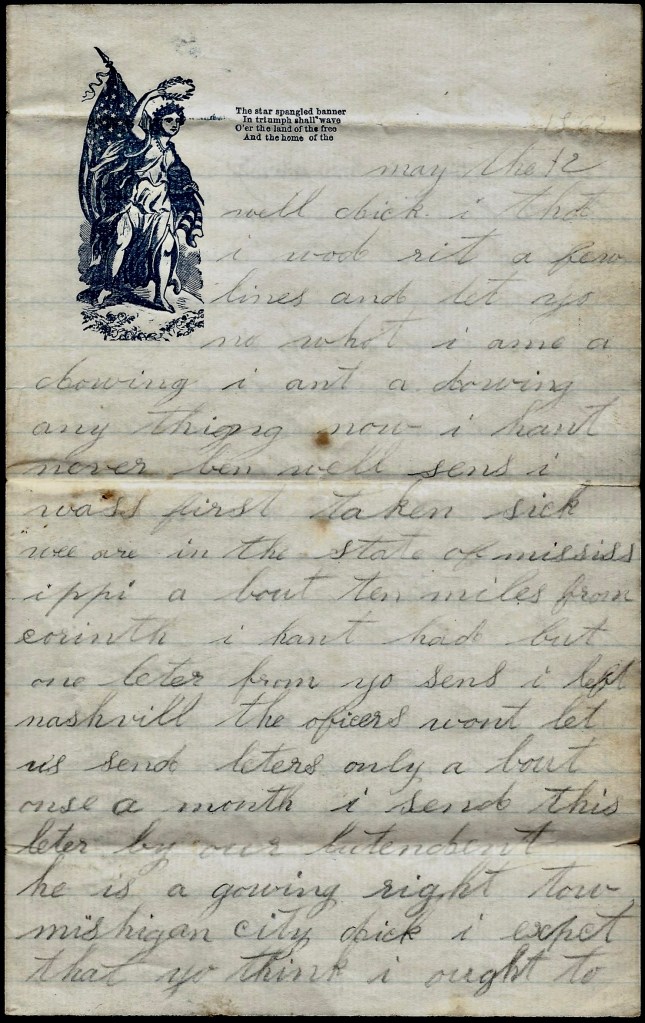 The star spangled banner
In triumph shall wave
O'er the land of the free
And the home of the
may the 12
well dick i tho
i wod rit a few
lines and let yo
no whot i ame a
dowing i ant a dowing
any thigng now i hant
never ben well sens i
wass first taken sick
wee are in the state of mississ
ippi a bout ten miles from
corinth i hant had but
one leter from yo sens i left
nashvill the oficers wont let
us send leters only a bout
onse a month i send this
leter by our lutendent
he is a gowing right tow
mishigan city dick i expct
that yo think i ought to